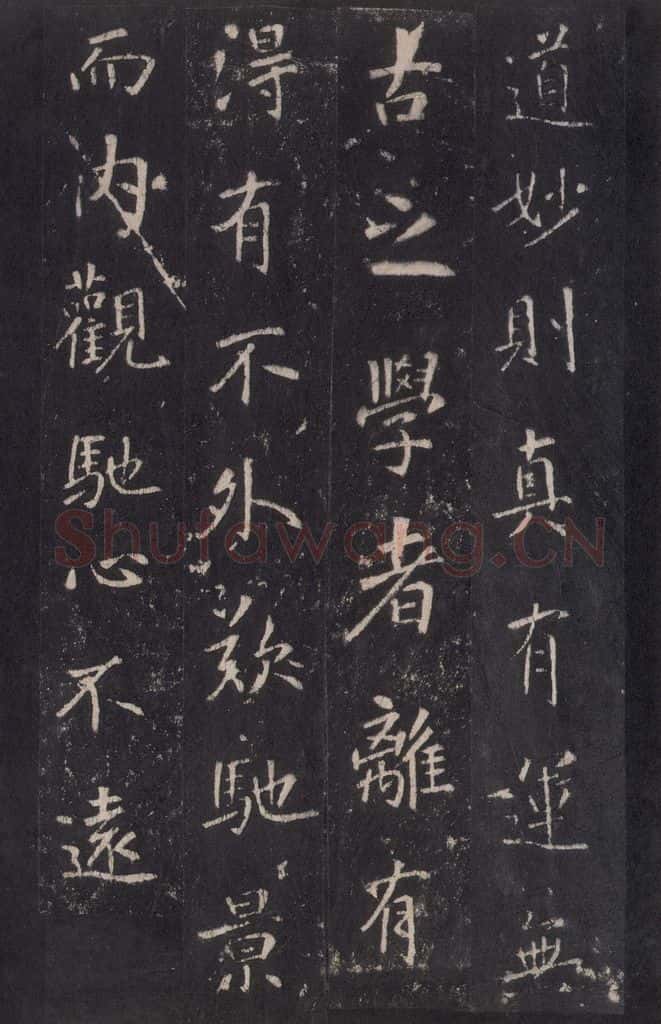 道妙則真有運無
古之學者離有
得有不外欵馳景
而内觀馳心不遠
Shufawang.CN